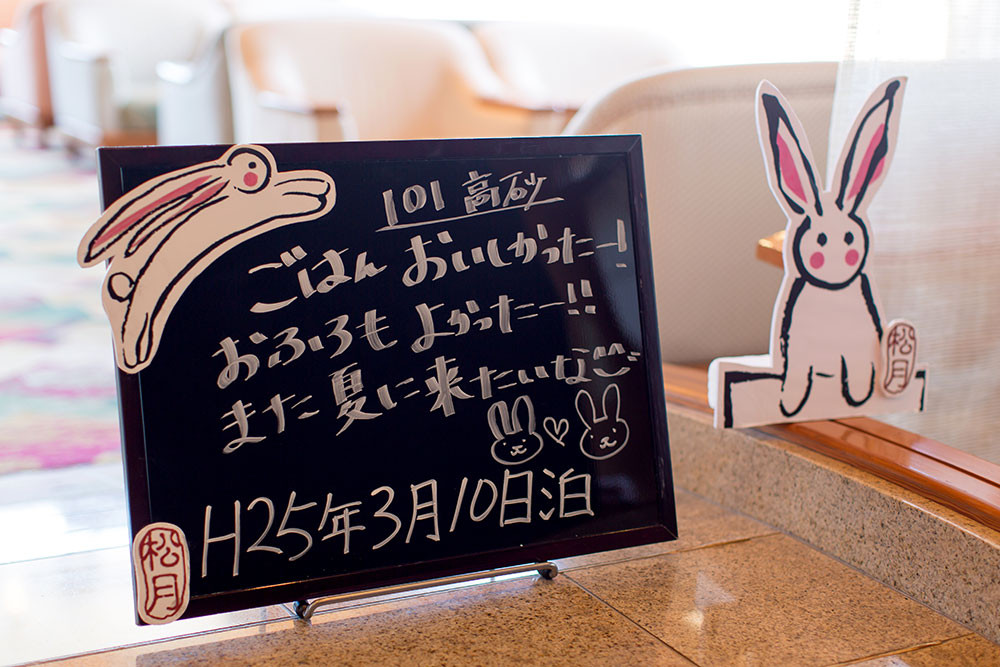 101 高砂
ごはん おいしかったー!
おふろも よかったー!!
また夏に来たいな
H25年3月10日泊
松月
松月